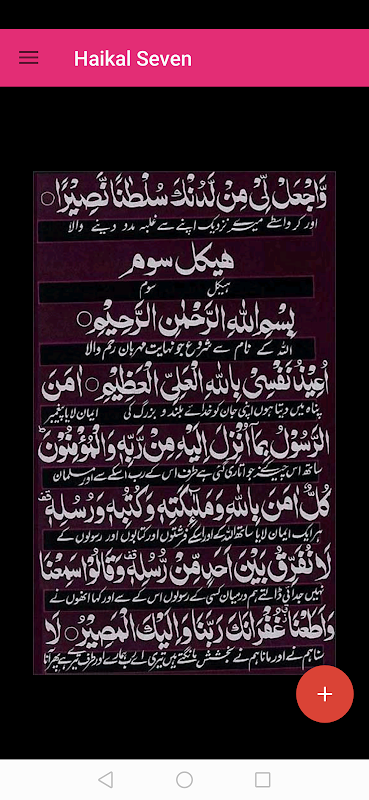 Haikal Seven
وَّاجْعَلْ لِّیْ مِنْ لَّدُنْكَ سُلْطٰنًا نَّصِیْرًا○
اور کر واسطے میرے نزدیک اپنے سے غلبہ مدد دینے والا
هیکل سوم
ہیکل سوم
بِسْمِ اللهِ الرَّحْمٰنِ الرَّحِیْمِ○
اللہ کے نام سے شروع جو نہایت مہربان رحم والا
اُعِیْذُ نَفْسِیْ بِاللهِ الْعَلِیِّ الْعَظِیْمِ○ اٰمَنَ
پناہ میں دیتا ہوں اپنی جان کو خدائے بلند و بزرگ کی ایمان لایا پیغمبر
الرَّسُوْلُ بِمَاۤ اُنْزِلَ اِلَیْهِ مِنْ رَّبِّهٖ وَالْمُؤْمِنُوْنَ ؕ
ساتھ اس چیز کے جو اتاری گئی ہے طرف اس کے رب اسکے سے اور مسلمان
كُلٌّ اٰمَنَ بِاللهِ وَمَلٰٓئِكَتِهٖ وَكُتُبِهٖ وَرُسُلِهٖ
ہر ایک ایمان لایا ساتھ اللہ کے اور اسکے فرشتوں اور کتابوں اور رسولوں کے
لَا نُفَرِّقُ بَیْنَ اَحَدٍ مِّنْ رُّسُلِهٖ وَقَالُوْا سَمِعْنَا
نہیں جدائی ڈالتے ہم درمیان کسی کے رسولوں اس کے سے اور کہا انھوں نے
وَاَطَعْنَا غُفْرَانَكَ رَبَّنَا وَاِلَیْكَ الْمَصِیْرُ○ لَا
سنا ہم نے اور مانا ہم نے بخشش مانگتے ہیں تیری اے رب ہمارے اور طرف تیرے ہے پھر آنا